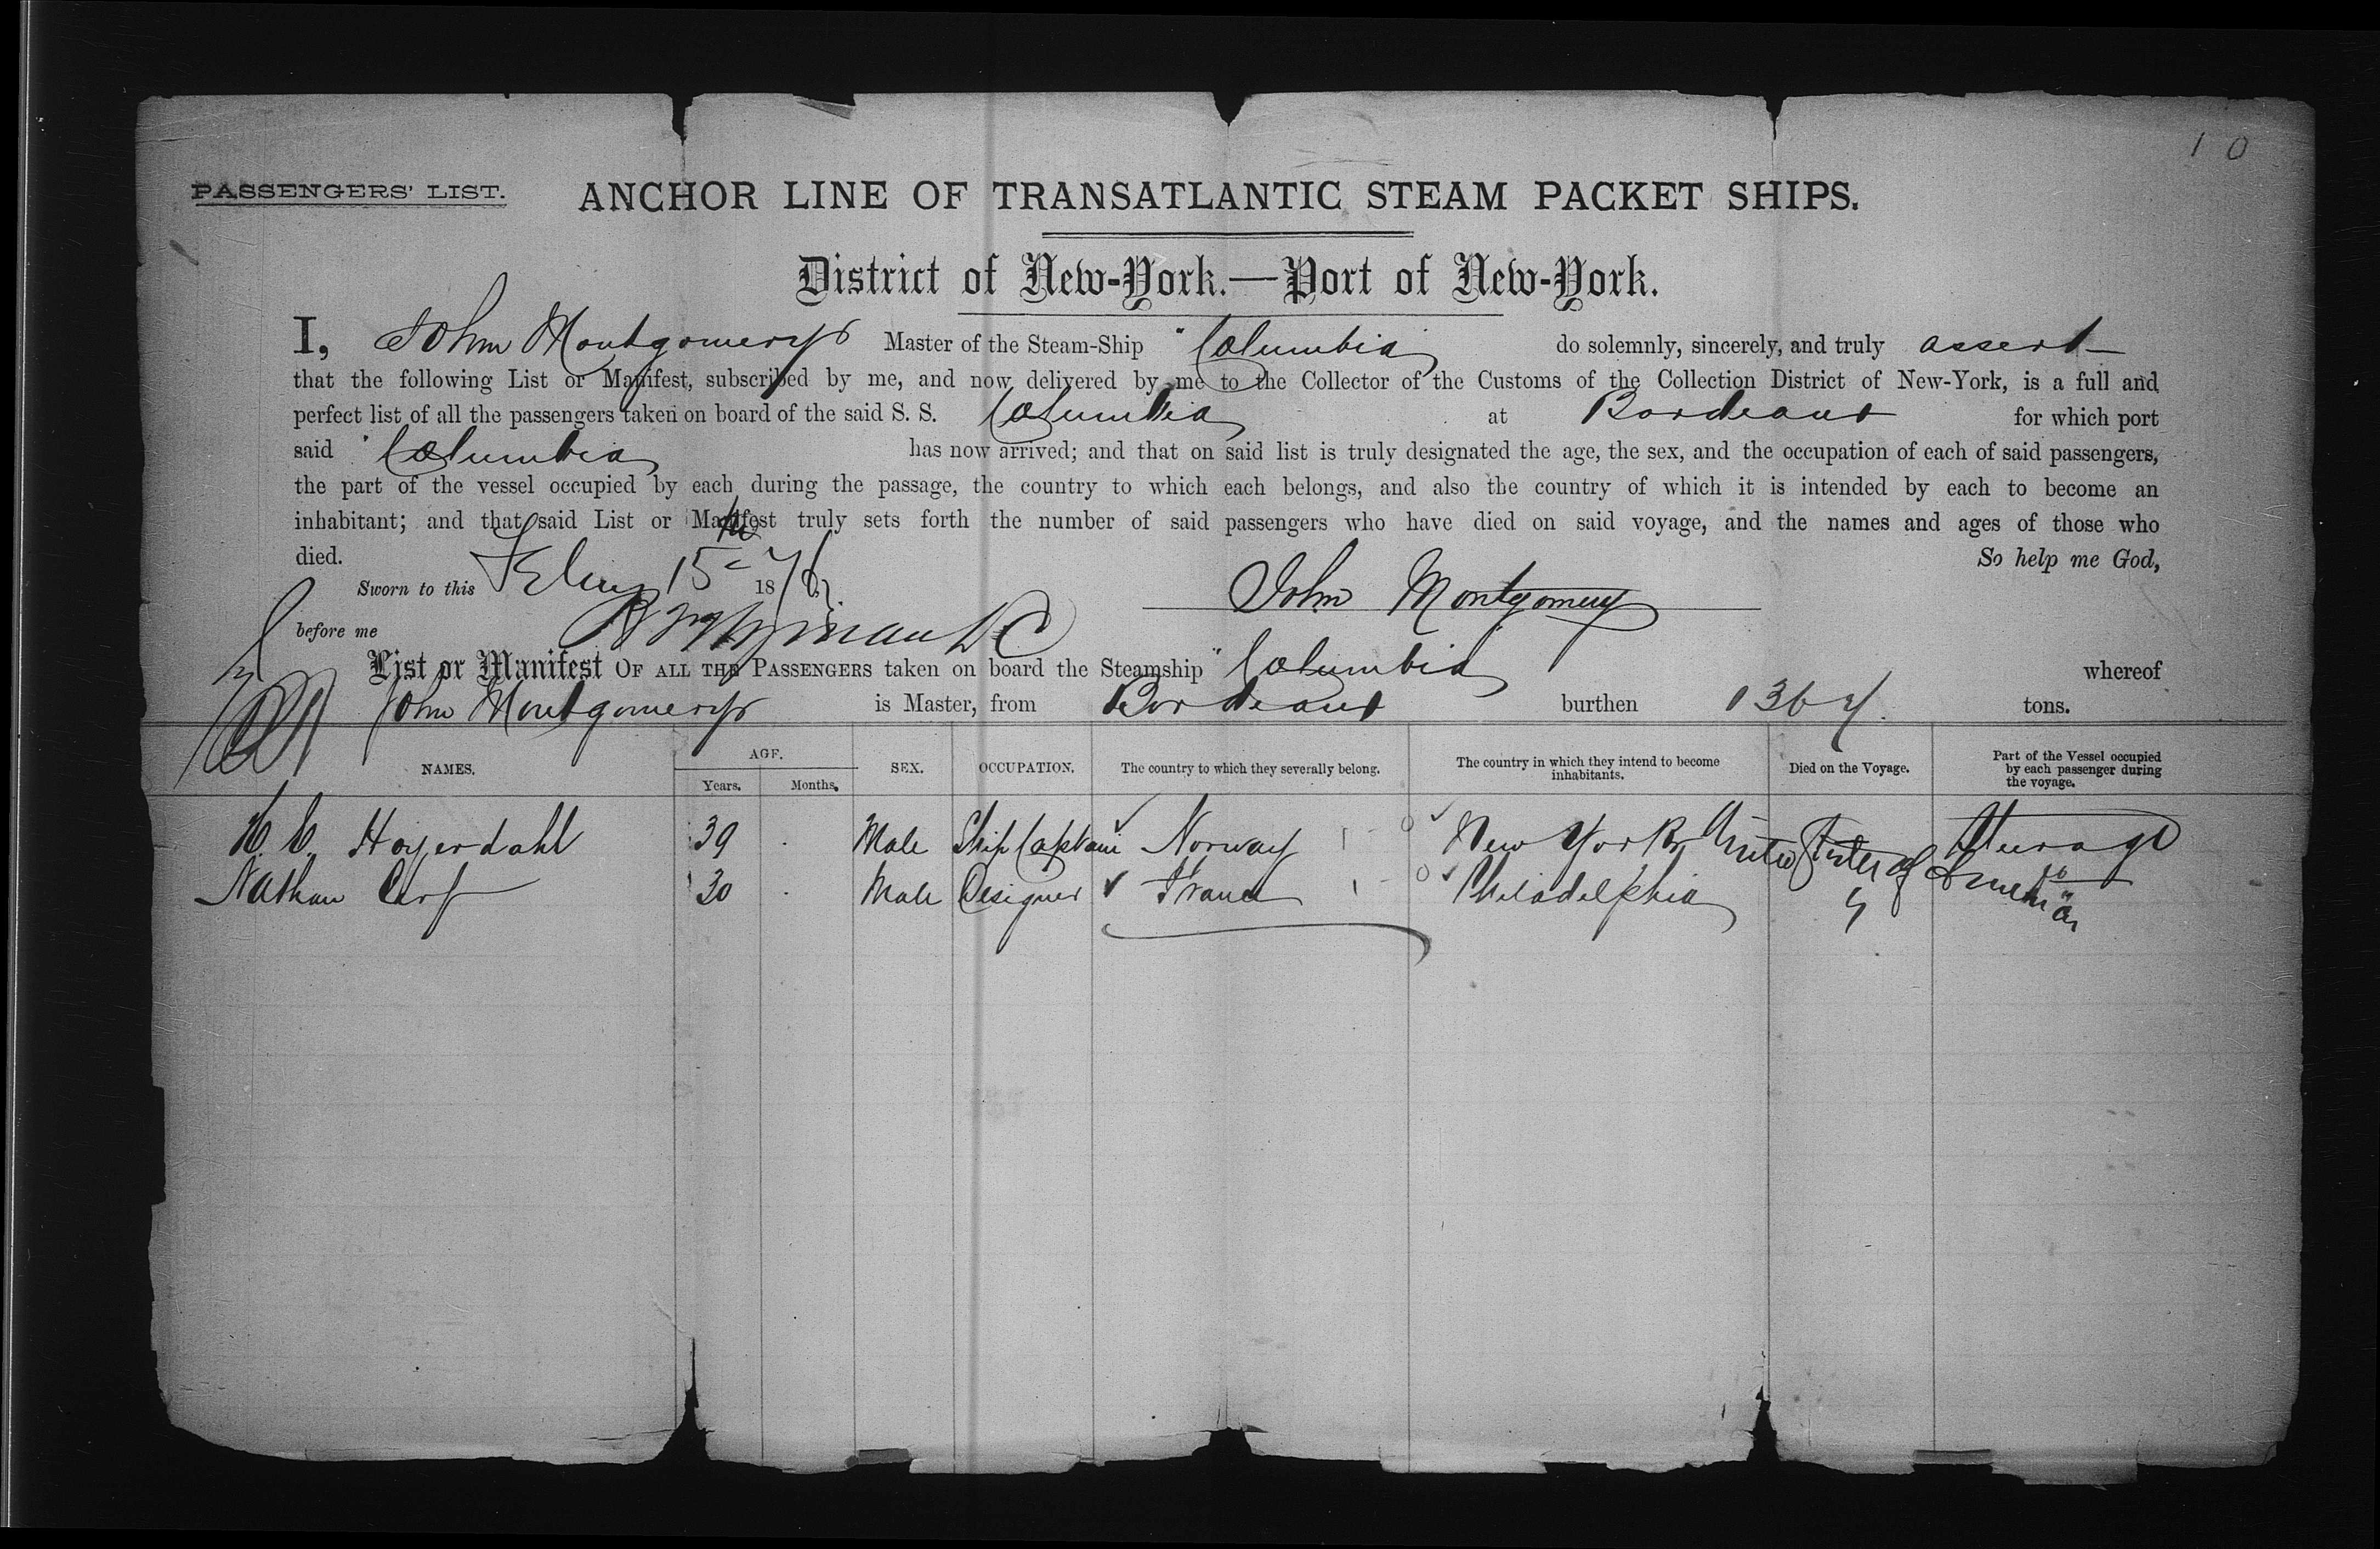 1 0
PASSENGERS' LIST. ANCHOR LINE OF TRANSATLANTIC STEAM PACKET SHIPS.
District of New-York.—Port of New-York.
I, John Montgomery Master of the Steam-Ship "Columbia do solemnly, sincerely, and truly assert
that the following List or Manifest, subscribed by me, and now delivered by me to the Collector of the Customs of the Collection District of New-York, is a full and
perfect list of all the passengers taken on board of the said S. S. Columbia at Bordeaux for which port
said "Columbia has now arrived; and that on said list is truly designated the age, the sex, and the occupation of each of said passengers,
the part of the vessel occupied by each during the passage, the country to which each belongs, and also the country of which it is intended by each to become an
inhabitant; and that said List or Manifest truly sets forth the number of said passengers who have died on said voyage, and the names and ages of those who
died. So help me God,
Sworn to this Feby 15 1876 John Montgomery
before me
List or Manifest OF ALL THE PASSENGERS taken on board the Steamship "Columbia whereof
John Montgomery is Master, from Bordeaux burthen tons.
NAMES. AGE. Years. Months. SEX. OCCUPATION. The country to which they severally belong. The country in which they intend to become inhabitants. Died on the Voyage. Part of the Vessel occupied by each passenger during the voyage.
Hoyerdahl 39 Male Ship Captain Norway New York United States of America Steerage
Nathan Cerf 30 Male Designer France Philadelphia